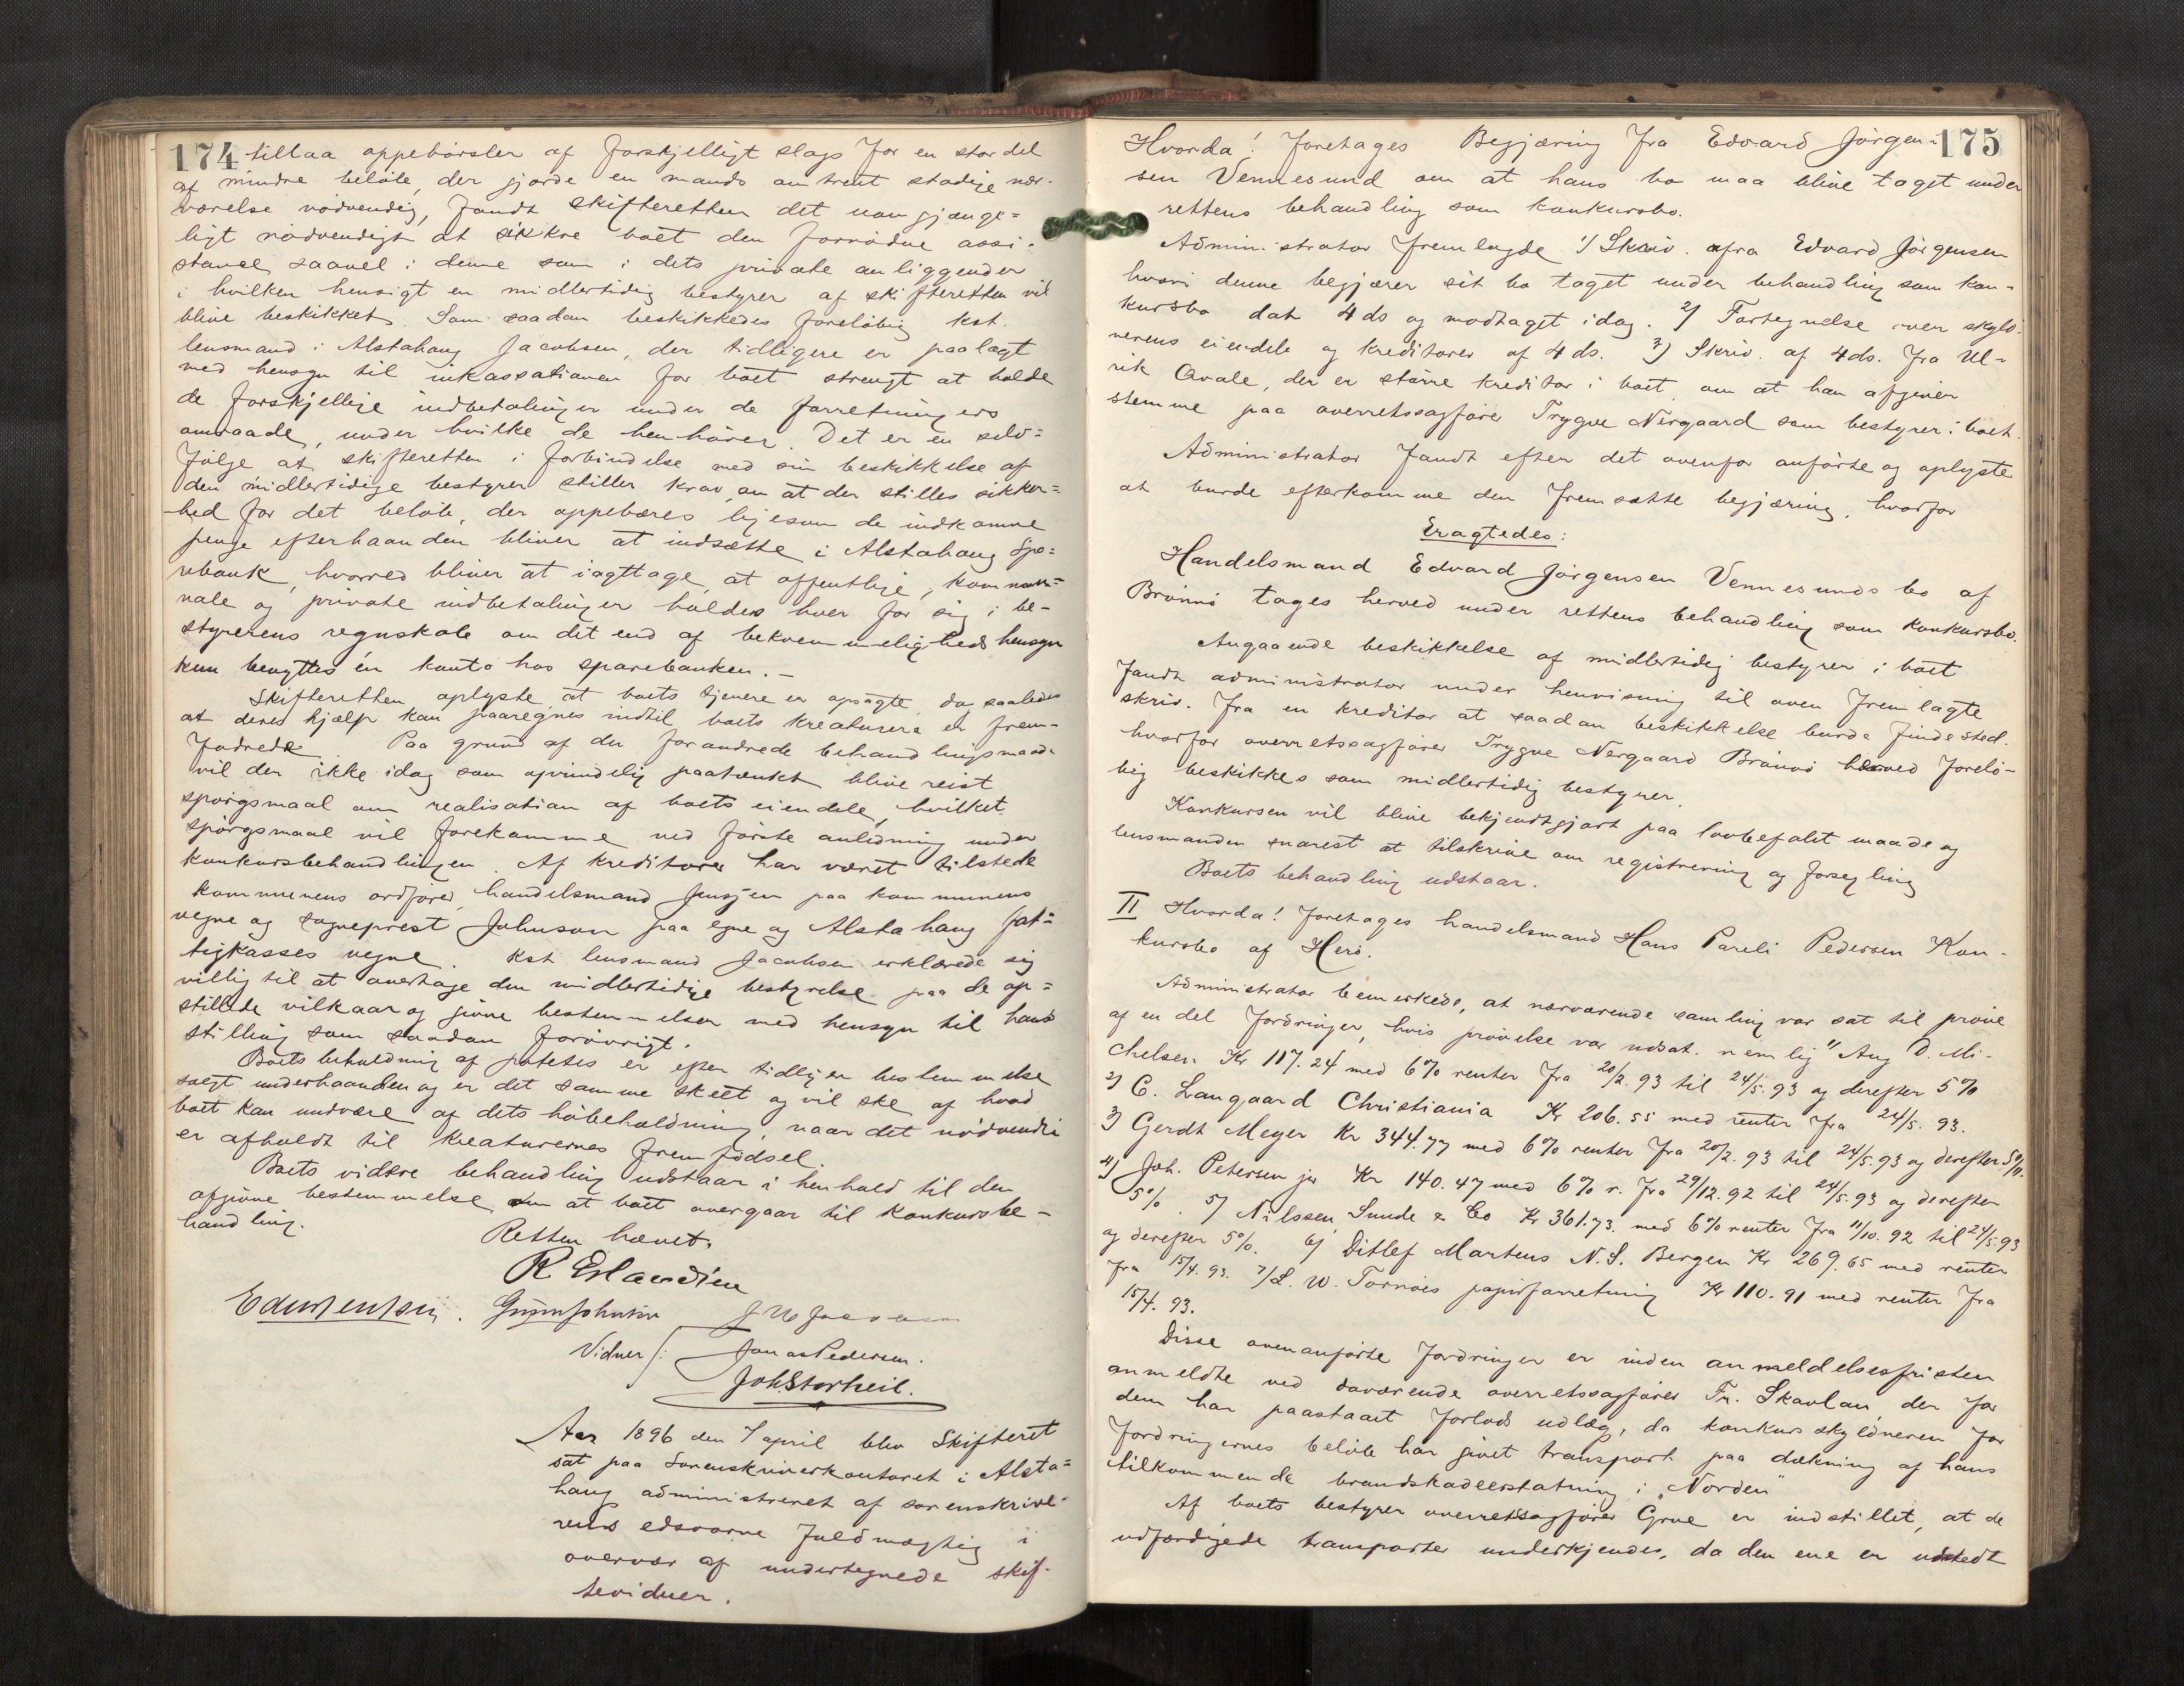 174
tillaa oppebørsler af forskjelligt slags for en stor del
af mindre beløb, der gjorde en mands omtrent stadige nær-
værelse nødvendig, fandt skifteretten det uomgjænge=
ligt nødvendigt at sikkre boet den fornødne assi-
stance saavel i denne som i dets private anliggender
i hvilken hensigt en midlertidig bestyrer af skifteretten vil
blive beskikket. Som saadan beskikkedes foreløbig kst.
lensmand i Alstahaug Jacobsen, der tidligere er paalagt
med hensyn til inkassationen for boet strengt at holde
de forskjellige indbetalinger under de forretningers
omraade, under hvilke de henhører. Det er en selv=
følge at skifteretten i forbindelse med sin beskikkelse af
den midlertidige bestyrer stiller krav om at der stilles sikker=
hed for det beløb, der oppebæres ligesom de indkomne
penge efterhaanden bliver at indsætte i Alstahaug Spa=
rebank, hvorved bliver at iagttage, at offentlige, kommu=
nale og private indbetalinger holdes hver for sig i be-
styrerens regnskab om det end af bekvemmeligheds hensyn
kun benyttes én konto hos sparebanken. –
Skifteretten oplyste at boets tjenere er opsagte dog saaledes
at deres hjælp kan paaregnes indtil boets kreaturer er frem-
fodrede. Paa grund af den forandrede behandlingsmaade
vil der ikke idag som oprindelig paatænkt blive reist
spørgsmaal om realisation af boets eiendele, hvilket
spørgsmaal vil forekomme ved første anledning under
konkursbehandlingen. Af kreditorer har været tilstede
kommunens ordfører, handelsmand Jensen paa kommunens
vegne og sogneprest Johnson paa egne og Alstahaug fat=
tigkasses vegne. Kst lensmand Jacobsen erklærede sig
villig til at overtage den midlertidige bestyrelse paa de op=
stillede vilkaar og givne bestemmelser med hensyn til hans
stilling som saadan forøvrigt.
Boets beholdning af potetes er efter tidligere bestemmelse
solgt underhaanden og er det samme skeet og vil ske af hvad
boet kan undvære af dets høbeholdning, naar det nødvendige
er afholdt til kreaturernes fremfødsel.
Boets videre behandling udstaar i henhold til den
afgivne bestemmelse om at boet overgaar til konkursbe-
handling.
Retten hævet.
R Erlandsen
Edv Jensen. Grim Johnson J W Jacobsen
Vidner /: Jonas Pedersen.
Joh. Storheil.
Aar 1896 den 7 april blev Skifteret
sat paa Sorenskriverkontoret i Alsta=
haug administreret af sorenskrive-
rens edsvorne fuldmægtig i
overvær af undertegnede skif-
tevidner.
175
Hvorda! foretages Begjæring fra Edvard Jørgen-
sen Vennesund om at hans bo maa blive taget under
rettens behandling som konkursbo.
Administrator fremlagde 1/ Skriv. fra Edvard Jørgensen
hvori denne begjærer sit bo taget under behandling som kon-
kursbo dat 4 ds og modtaget idag. 2/ Fortegnelse over skyld-
nerens eiendele og kreditorer af 4 ds. 3) Skriv. af 4 ds. fra Ul-
rik Qvale, der er større kreditor i boet om at han afgiver
stemme paa overretssagfører Trygve Nergaard som bestyrer i boet.
Administrator fandt efter det ovenfor anførte og oplyste
at burde efterkomme den fremsatte begjæring, hvorfor
Eragtedes:
Handelsmand Edvard Jørgensen Vennesunds bo af
Brønnø tages herved under rettens behandling som konkursbo.
Angaaende beskikkelse af midlertidig bestyrer i boet
fandt administrator under henvisning til oven fremlagte
skriv. fra en kreditor at saadan beskikkelse burde finde sted.
hvorfor overretssagfører Trygve Nergaard Brønnø herved forelø-
big beskikkes som midlertidig bestyrer.
Konkursen vil blive bekjendtgjort paa lovbefalet maade og
lensmanden snarest at tilskrive om registrering og forsegling
Boets behandling udstaar.
II Hvorda! foretages handelsmand Hans Pareli Pedersen Kon-
kursbo af Herø.
Administrator bemerkede, at nærværende samling var sat til prøve
af en del fordringer, hvis prøvelse var udsat. nemlig 1) Aug D. Mi-
chelsen Kr 117.24 med 6% renter fra 20/2.93 til 24/5.93 og derefter 5%
2) C. Langaard Christiania Kr 206.55 med renter fra 24/5.93.
3) Gerdt Meyer Kr 344.77 med 6% renter fra 20/2.93 til 24/5.93 og derefter 5%.
4) Joh. Petersen jr Kr 140.47 med 6% r. fra 29/12.92 til 24/5.93 og derefter
5%. 5) Nilssen, Sunde & Co Kr 361.73. med 6% renter fra 11/10.92 til 24/5.93
og derefter 5%. 6) Ditlef Martens N.S. Bergen Kr 269.65 med renter
fra 15/4.93. 7/ L. W. Tornøes papirforretning Kr 110.91 med renter fra
15/4.93.
Disse ovenanførte fordringer er inden anmeldelsesfristen
anmeldte ved daværende overretssagfører Fr. Skavlan, der for
dem har paastaaet forlods udlæg, da konkursskyldneren for
fordringernes beløb har givet transport paa dækning af hans
tilkommende brandskadeerstatning i „Norden"
Af boets bestyrer overretssagfører Grue er indstillet, at de
udfærdigede transporter underkjendes, da den ene er udstedt